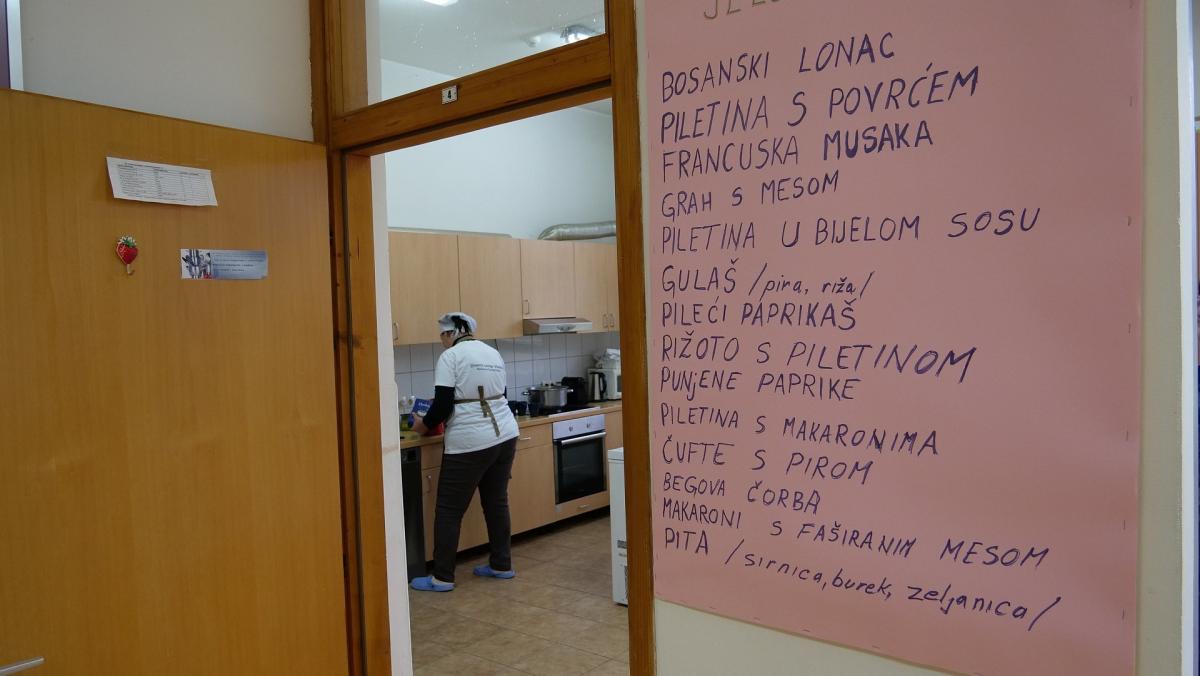 4
BOSANSKI LONAC
PILETINA S POVRĆEM
FRANCUSKA MUSAKA
GRAH S MESOM
PILETINA U BIJELOM SOSU
GULAŠ /pira, riža/
PILEĆI PAPRIKAŠ
RIŽOTO S PILETINOM
PUNJENE PAPRIKE
PILETINA S MAKARONIMA
ČUFTE S PIROM
BEGOVA ČORBA
MAKARONI S FAŠIRANIM MESOM
PITA /sirnica, burek, zeljanica/